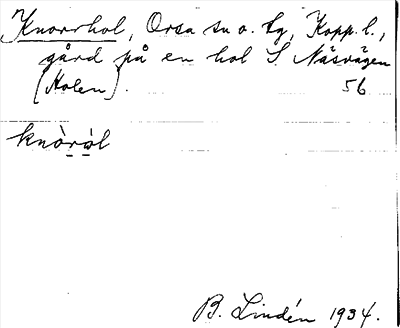 Knorrhol, Orsa sn o. tg, Kopp. l.,
gård på en hol S. Näsvägen
(Holen). 56
knòròl
B. Lindén 1934.